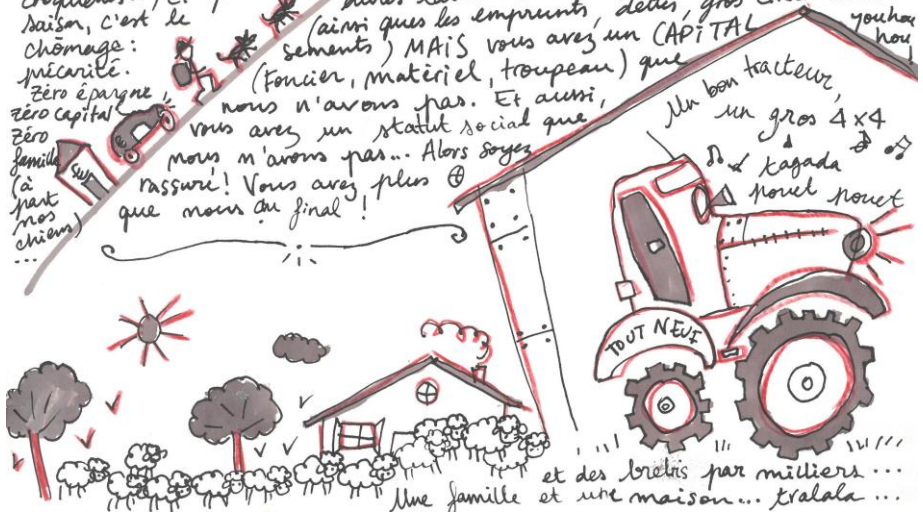 saison, c'est le
chômage :
précarité.
Zéro épargne
zéro capital
Zéro
famille
(à
part
nos
chiens)
...
(ainsi ques les emprunts, dettes, gros
sements) MAIS vous avez un CAPITAL
(Foncier, matériel, troupeau) que
nous n'avons pas. Et aussi,
vous avez un statut social que
nous n'avons pas... Alors soyez
rassuré ! Vous avez plus
que nous au final !
youhou
hou
Un bon tracteur,
un gros 4x4
tagada
pouet pouet
TOUT NEUF
et des brebis par milliers ...
Une famille et une maison... tralala ...